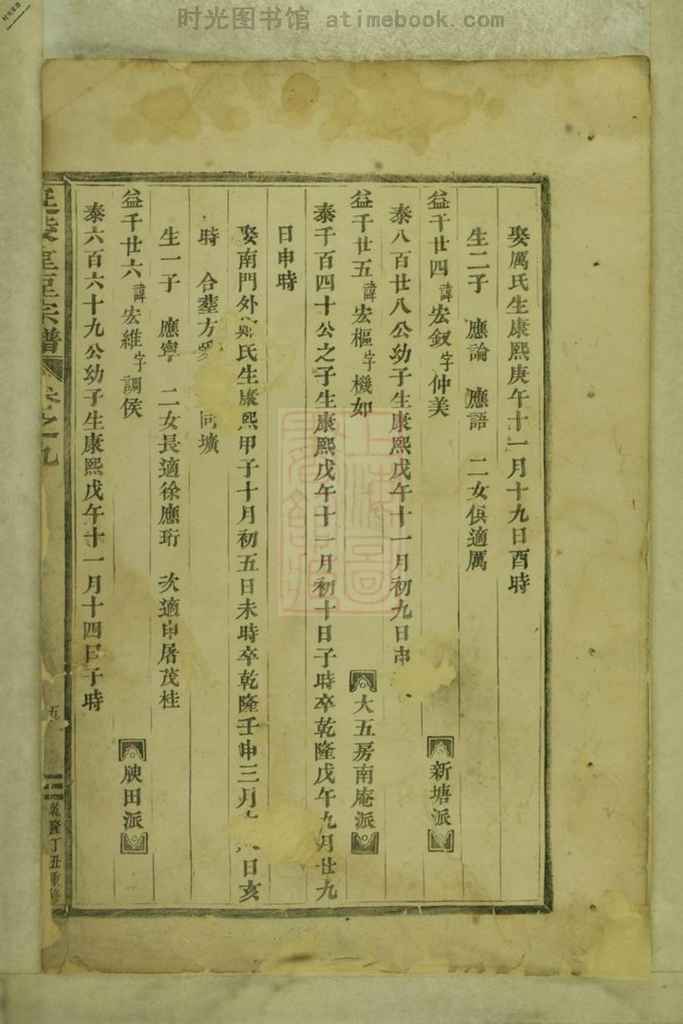 时光图书馆 atimebook.com
娶厲氏生康熙庚午十一月十九日酉時
生二子 應論 應語 二女俱適厲
益千廿四 諱宏釵 字仲美 新塘派
泰八百廿八公幼子生康熙戊午十一月初九日申
益千廿五 諱宏樞 字機如 大五房南庵派
泰千百四十公之子生康熙戊午十一月初十日子時卒乾隆戊午九月廿九
日申時
娶南門外 氏生康熙甲子十月初五日未時卒乾隆壬申三月 日亥
時 合塟方 同壙
生一子 應寧 二女長適徐應珩 次適申屠茂桂
益千廿六 諱宏維 字調侯 腴田派
泰六百六十九公幼子生康熙戊午十一月十四日子時
宗譜 卷之九 五 乾隆丁丑重修